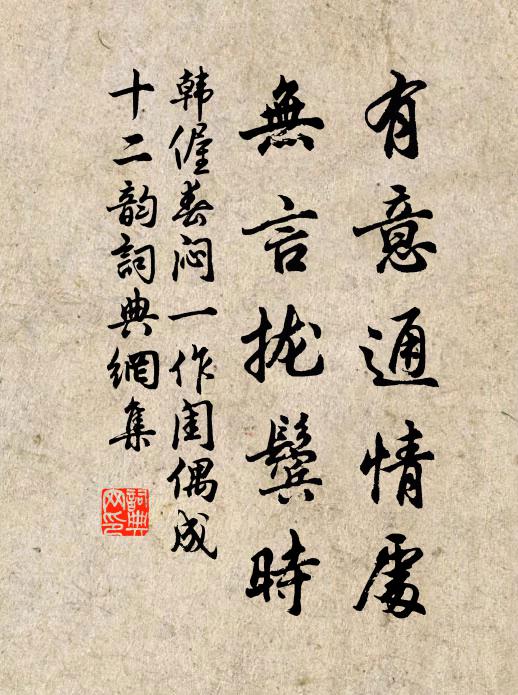 有意通情處
無言拢鬓時
韩偓春闷一作闺偶成
十二韵詞典網集
詞典网印